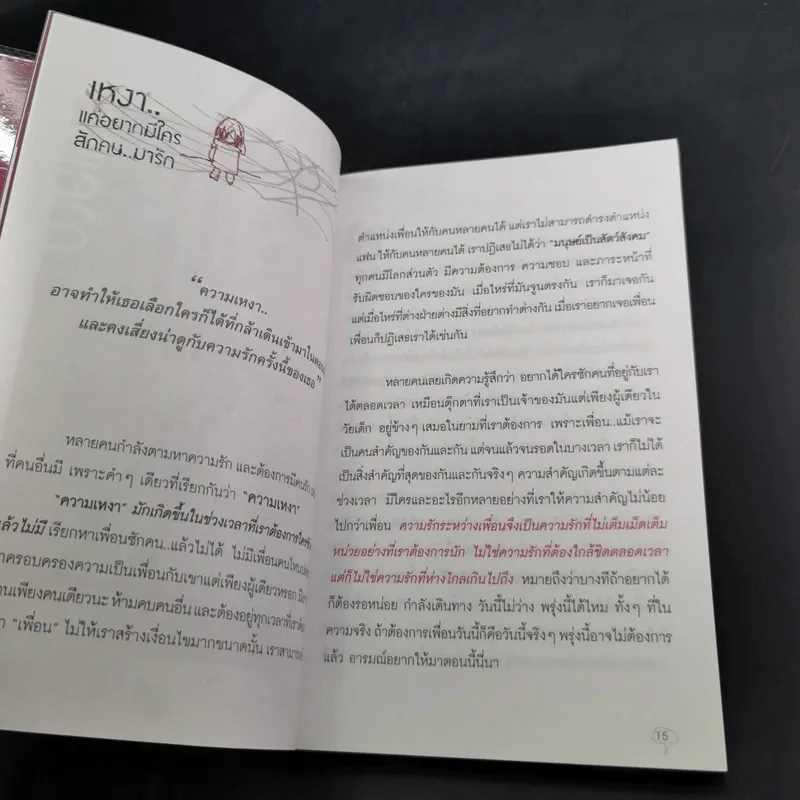 เหงา..
แค่อยากมีใคร
สักคน..มารัก
“ความเหงา..
อาจทำให้เธอเลือกใครก็ได้ที่กล้าเดินเข้ามาในตอน
และคงเสี่ยงน่าดูกับความรักครั้งนี้ของเธอ”
หลายคนกำลังตามหาความรัก และต้องการมีคนรัก
ที่คนอื่นมี เพราะคำๆ เดียวที่เรียกกันว่า “ความเหงา”
“ความเหงา” มักเกิดขึ้นในช่วงเวลาที่เราต้องการใคร
แล้วไม่มี เรียกหาเพื่อนซักคน..แล้วไม่ได้ ไม่มีเพื่อนคนไหน
าครอบครองความเป็นเพื่อนกับเขาแต่เพียงผู้เดียวหรอก
นเพียงคนเดียวนะ ห้ามคบคนอื่น และต้องอยู่ทุกเวลาที่เรา
า “เพื่อน” ไม่ให้เราสร้างเงื่อนไขมากขนาดนั้น เราสามาร
ตำแหน่งเพื่อนให้กับคนหลายคนได้ แต่เราไม่สามารถดำรงตำแหน่ง
แฟน ให้กับคนหลายคนได้ เราปฏิเสธไม่ได้ว่า “มนุษย์เป็นสัตว์สังคม”
ทุกคนมีโลกส่วนตัว มีความต้องการ ความชอบ และภาระหน้าที่
รับผิดชอบของใครของมัน เมื่อไหร่ที่มันจูนตรงกัน เราก็มาเจอกัน
แต่เมื่อไหร่ที่ต่างฝ่ายต่างมีสิ่งที่อยากทำต่างกัน เมื่อเราอยากเจอเพื่อน
เพื่อนก็ปฏิเสธเราได้เช่นกัน
หลายคนเลยเกิดความรู้สึกว่า อยากได้ใครซักคนที่อยู่กับเรา
ได้ตลอดเวลา เหมือนตุ๊กตาที่เราเป็นเจ้าของมันแต่เพียงผู้เดียวใน
วัยเด็ก อยู่ข้างๆ เสมอในยามที่เราต้องการ เพราะเพื่อน..แม้เราจะ
เป็นคนสำคัญของกันและกัน แต่จนแล้วจนรอดในบางเวลา เราก็ไม่ได้
เป็นสิ่งสำคัญที่สุดของกันและกันจริงๆ ความสำคัญเกิดขึ้นตามแต่ละ
ช่วงเวลา มีใครและอะไรอีกหลายอย่างที่เราให้ความสำคัญไม่น้อย
ไปกว่าเพื่อน ความรักระหว่างเพื่อนจึงเป็นความรักที่ไม่เต็มเม็ดเต็ม
หน่วยอย่างที่เราต้องการนัก ไม่ใช่ความรักที่ต้องใกล้ชิดตลอดเวลา
แต่ก็ไม่ใช่ความรักที่ห่างไกลเกินไปถึง หมายถึงว่าบางทีถ้าอยากได้
ก็ต้องรอหน่อย กำลังเดินทาง วันนี้ไม่ว่าง พรุ่งนี้ได้ไหม ทั้งๆ ที่ใน
ความจริง ถ้าต้องการเพื่อนวันนี้ก็คือวันนี้จริงๆ พรุ่งนี้อาจไม่ต้องการ
แล้ว อารมณ์อยากให้มาตอนนี้นี่นา
15